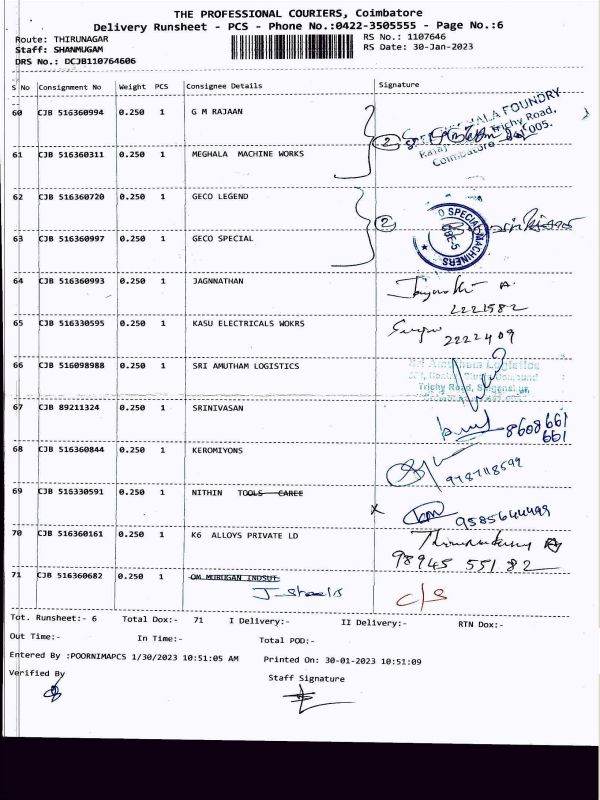 THE PROFESSIONAL COURIERS, Coimbatore
Delivery Runsheet - PCS - Phone No.:0422-3505555 - Page No.:6
Route: THIRUNAGAR RS No.: 1107646
Staff: SHANMUGAM RS Date: 30-Jan-2023
DRS No.: DCJB110764606
S No Consignment No Weight PCS Consignee Details Signature
60 CJB 516360994 0.250 1 G M RAJAAN
FOUNDRY
Trichy Road,
Coimbatore 005.
2
61 CJB 516360311 0.250 1 MEGHALA MACHINE WORKS
62 CJB 516360720 0.250 1 GECO LEGEND
2
O SPECIAL MACHINERS
CBE-5
63 CJB 516360997 0.250 1 GECO SPECIAL
64 CJB 516360993 0.250 1 JAGNNATHAN
2221582
65 CJB 516330595 0.250 1 KASU ELECTRICALS WOKRS
2222409
66 CJB 516098988 0.250 1 SRI AMUTHAM LOGISTICS
Sri Amutham Logistics
Trichy Road,
67 CJB 89211324 0.250 1 SRINIVASAN
8608661
661
68 CJB 516360844 0.250 1 KEROMIYONS
9787118599
69 CJB 516330591 0.250 1 NITHIN TOOLS CAREE
X
9585644499
70 CJB 516360161 0.250 1 K6 ALLOYS PRIVATE LD
98945 55182
71 CJB 516360682 0.250 1 OM MURUGAN INDSUT
C/S
Tot. Runsheet:- 6 Total Dox:- 71 I Delivery:- II Delivery:- RTN Dox:-
Out Time:- In Time:- Total POD:-
Entered By :POORNIMAPCS 1/30/2023 10:51:05 AM Printed On: 30-01-2023 10:51:09
Verified By Staff Signature